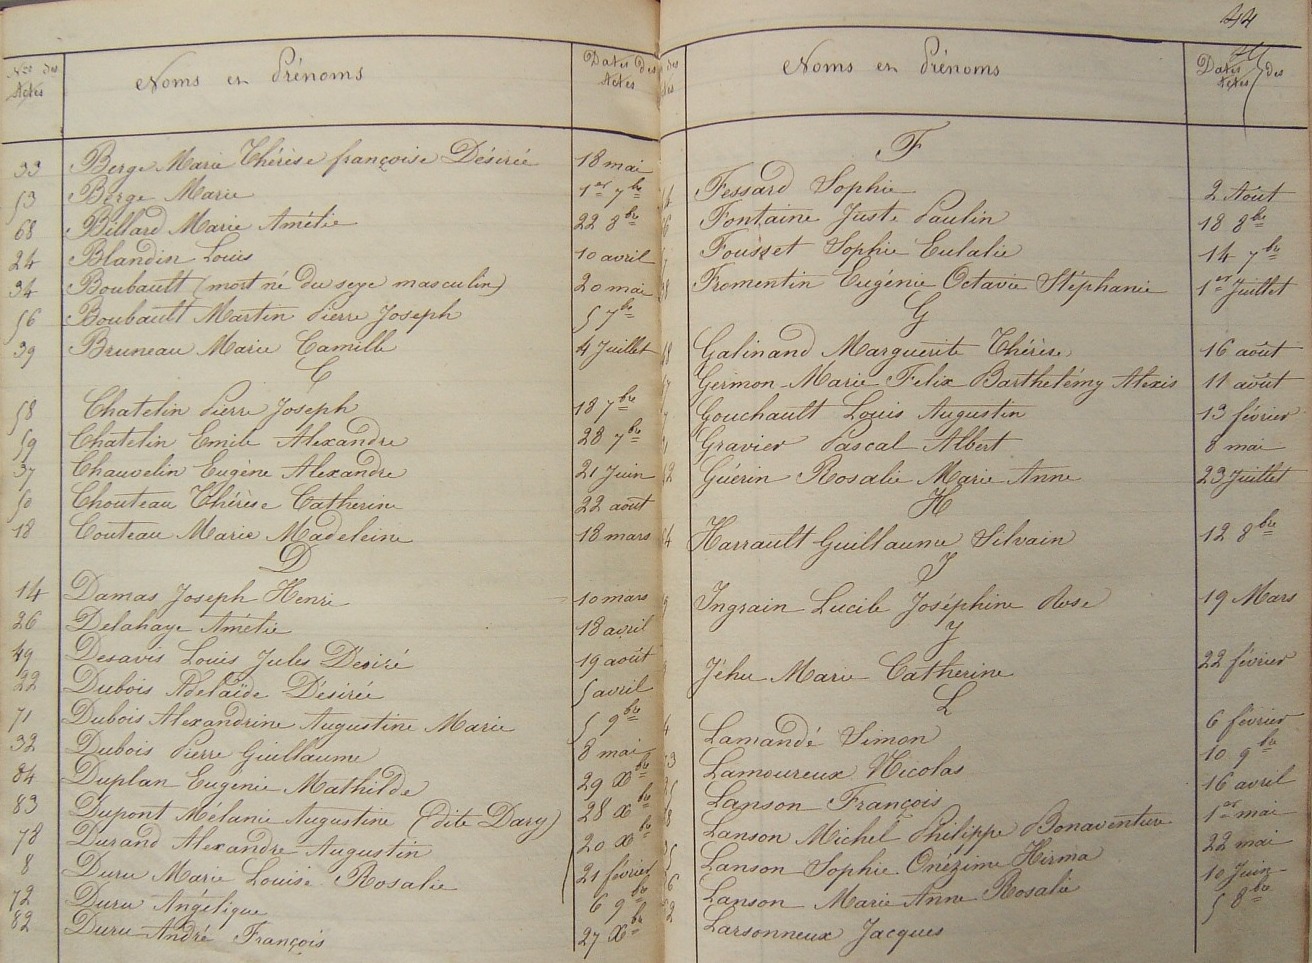 Nos des Actes Noms et Prénoms Dates des Actes
33 Berge Marie Thérèse françoise Désirée 18 mai
53 Berge Marie 1er 7bre
68 Billard Marie Amélie 22 8bre
24 Blandin Louis 10 avril
34 Boubault (mort né du sexe masculin) 20 mai
56 Boubault Martin Pierre Joseph 5 7bre
39 Bruneau Marie Camille 4 Juillet
C
58 Chatelin Pierre Joseph 18 7bre
59 Chatelin Emile Alexandre 28 7bre
37 Chauvelin Eugène Alexandre 21 Juin
50 Chouteau Thérèse Catherine 22 août
18 Couteau Marie Madeleine 18 mars
D
14 Damas Joseph Henri 10 mars
26 Delahaye Amélie 18 avril
49 Desavis Louis Jules Desiré 19 août
22 Dubois Adelaïde Désirée 5 avril
71 Dubois Alexandrine Augustine Marie 5 9bre
32 Dubois Pierre Guillaume 8 mai
84 Duplan Eugénie Mathilde 29 Xbre
83 Dupont Mélanie Augustine (dite Dary) 28 Xbre
78 Durand Alexandre Augustin 20 Xbre
8 Duru Marie Louise Rosalie 21 février
72 Duru Angélique 6 9bre
82 Duru André François 27 Xbre
44
Noms et Prénoms Dates des Actes
F
Fessard Sophie 2 Août
Fontaine Juste Paulin 18 8bre
Fousset Sophie Eulalie 14 7bre
Fromentin Eugénie Octavie Stéphanie 1er Juillet
G
Galinand Marguerite Thérèse 16 août
Germon Marie Felix Barthelémy Alexis 11 août
Gouchault Louis Augustin 13 février
Gravier Pascal Albert 8 mai
Guérin Rosalie Marie Anne 23 Juillet
H
Harrault Guillaume Silvain 12 8bre
I
Ingrain Lucile Joséphine Rose 19 Mars
J
Jéhu Marie Catherine 22 février
L
Lamandé Simon 6 février
Lamoureux Nicolas 10 9bre
Lanson François 16 avril
Lanson Michel Philippe Bonaventure 1er mai
Lanson Sophie Onézime Hirma 22 mai
Lanson Marie Anne Rosalie 10 Juin
Larsonneux Jacques 5 8bre